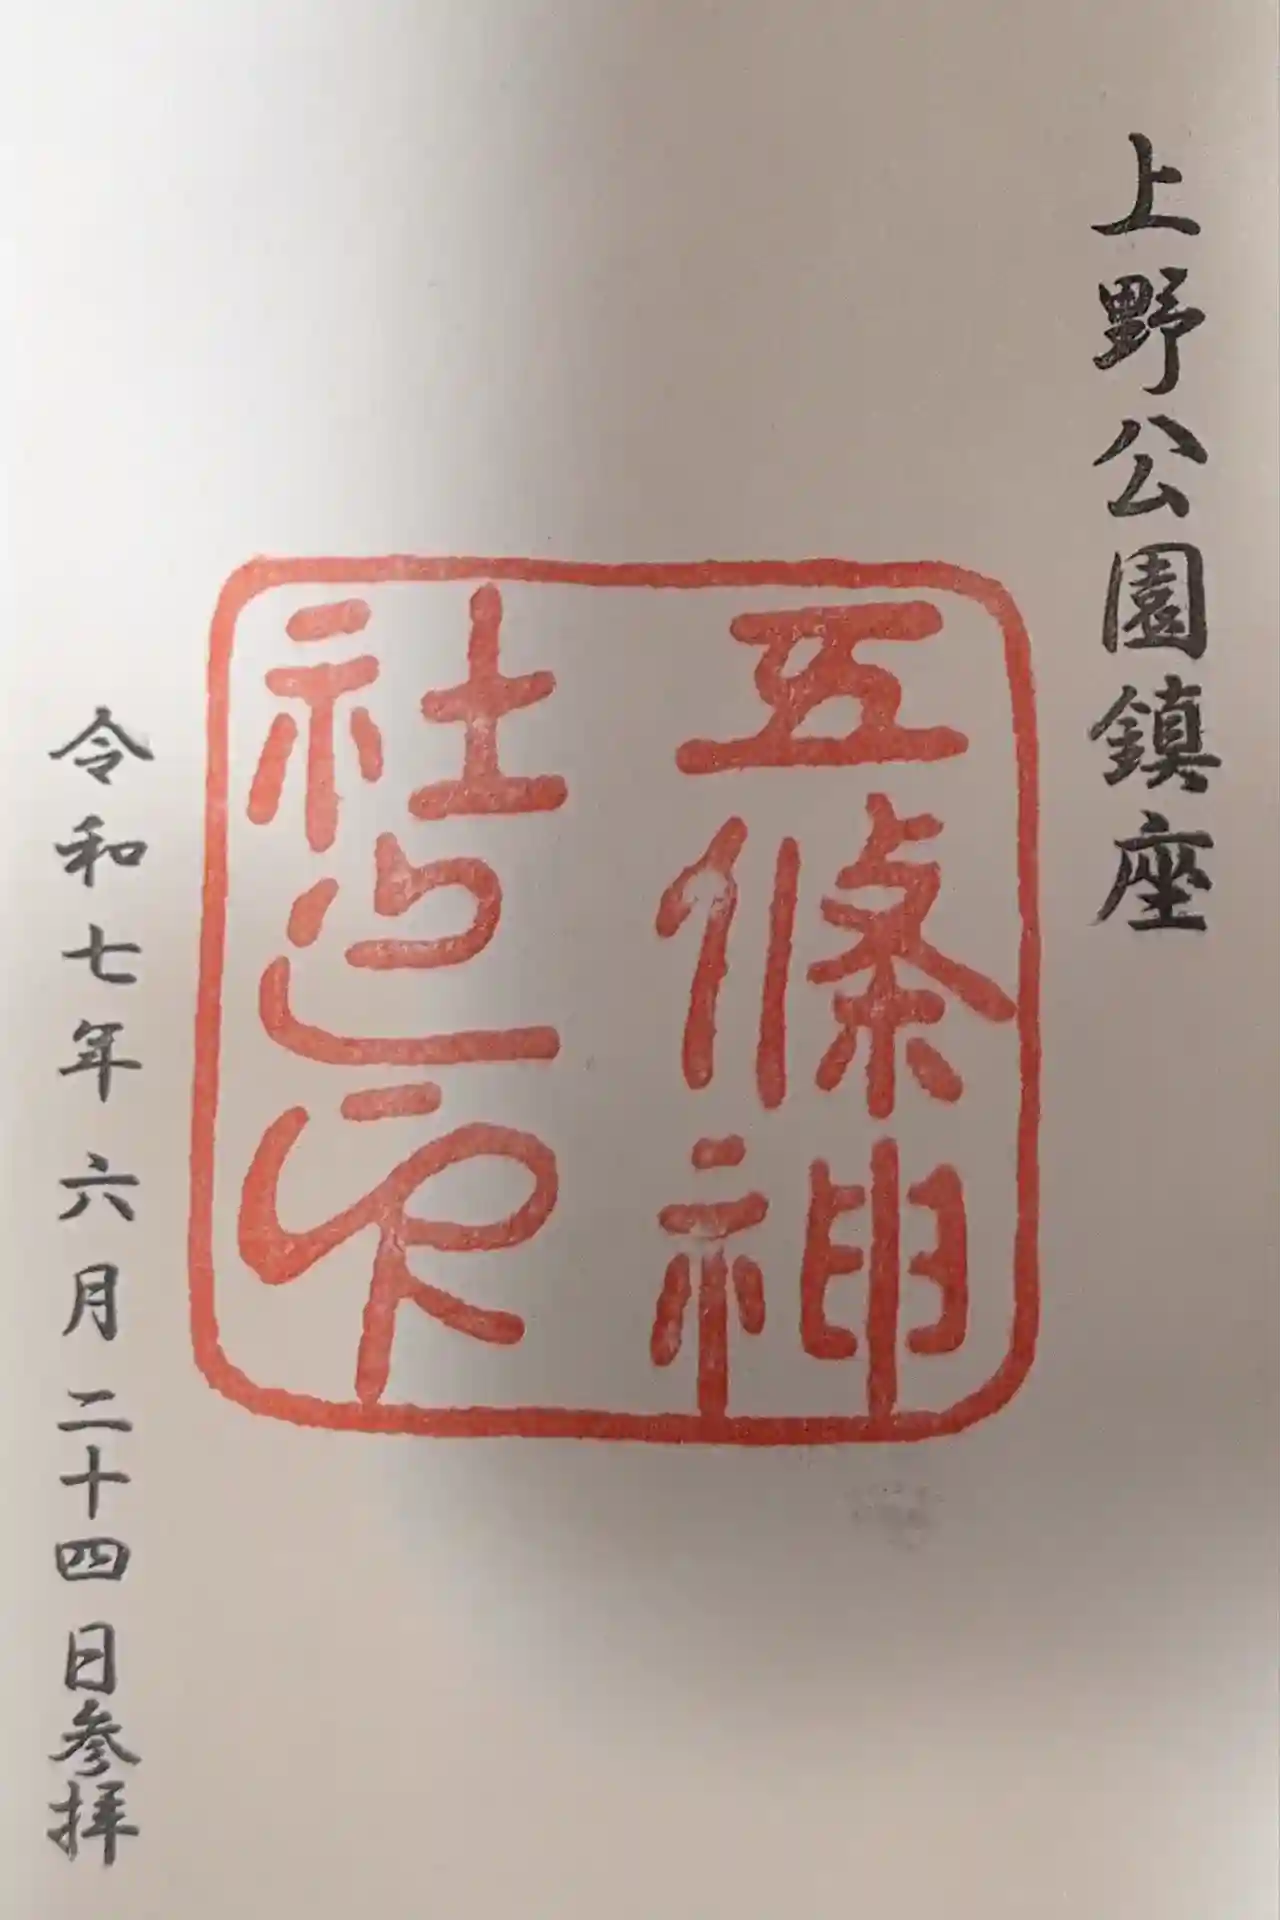 上野公園鎮座
五條神
社之印
令和七年六月二十四日参拝